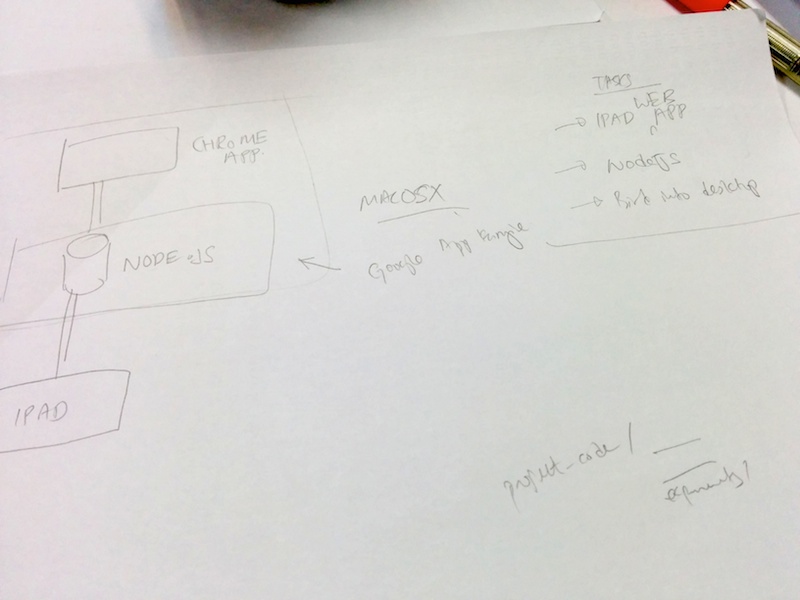 CHROME
APP.
NODE.JS
IPAD
MACOSX
Google App Engine
TASKS
→ IPAD WEB APP
→ NodeJS
→ into desktop
project_code /